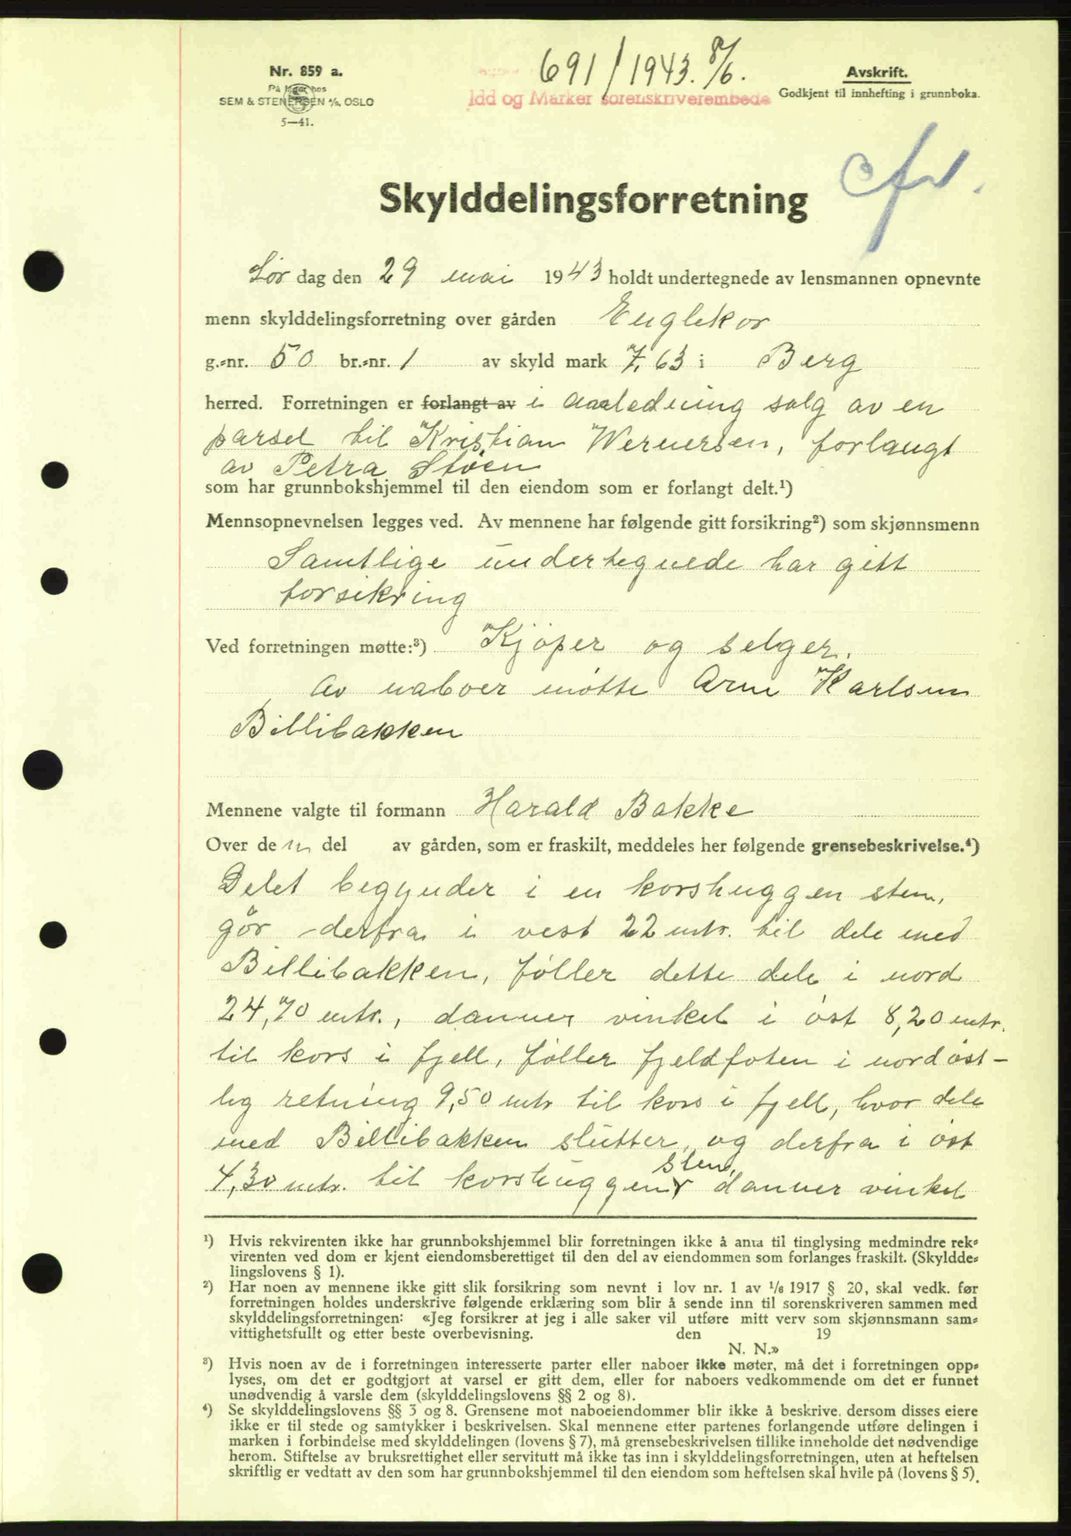 Nr. 859 a.
På lager hos
SEM & STENERSEN A/S, OSLO
5—41.
691/1943. 8/6.
Idd og Marker sorenskriverembede
Avskrift.
Godkjent til innhefting i grunnboka.
Skylddelingsforretning
Lør dag den 29 mai 1943 holdt undertegnede av lensmannen opnevnte
menn skylddelingsforretning over gården Englekor
g.-nr. 50 br.-nr. 1 av skyld mark 7,63 i Berg
herred. Forretningen er forlangt av i anledning salg av en
parsel til Kristian Wernersen, forlangt
av Petra Stöen
som har grunnbokshjemmel til den eiendom som er forlangt delt.¹)
Mennsopnevnelsen legges ved. Av mennene har følgende gitt forsikring²) som skjønnsmenn
Samtlige undertegnede har gitt
forsikring
Ved forretningen møtte:³) Kjøper og selger.
Av naboer møtte Arne Karlsen
Billibakken
Mennene valgte til formann Harald Bakke
Over de n del av gården, som er fraskilt, meddeles her følgende grensebeskrivelse.⁴)
Delet begynder i en korshuggen sten,
går derfra i vest 22 mtr. til dele med
Billibakken, føller dette dele i nord
24,70 mtr., danner vinkel i øst 8,20 mtr.
til kors i fjell, føller fjeldfoten i nordöst-
lig retning 9,50 mtr til kors i fjell, hvor dele
med Billibakken slutter, og derfra i øst
4,30 mtr. til korshuggen sten, danner vinkel
¹) Hvis rekvirenten ikke har grunnbokshjemmel blir forretningen ikke å anta til tinglysing medmindre rek-
virenten ved dom er kjent eiendomsberettiget til den del av eiendommen som forlanges fraskilt. (Skyldde-
lingslovens § 1).
²) Har noen av mennene ikke gitt slik forsikring som nevnt i lov nr. 1 av 1/6 1917 § 20, skal vedk. før
forretningen holdes underskrive følgende erklæring som blir å sende inn til sorenskriveren sammen med
skylddelingsforretningen: «Jeg forsikrer at jeg i alle saker vil utføre mitt verv som skjønnsmann sam-
vittighetsfullt og etter beste overbevisning. den 19
N. N.»
³) Hvis noen av de i forretningen interesserte parter eller naboer ikke møter, må det i forretningen opp-
lyses, om det er godtgjort at varsel er gitt dem, eller for naboers vedkommende om det er funnet
unødvendig å varsle dem (skylddelingslovens §§ 2 og 8).
⁴) Se skylddelingslovens §§ 3 og 8. Grensene mot naboeiendommer blir ikke å beskrive, dersom disses eiere
ikke er til stede og samtykker i beskrivelsen. Skal mennene etter partenes forlangende utføre delingen i
marken i forbindelse med skylddelingen (lovens § 7), må grensebeskrivelsen tillike inneholde det nødvendige
herom. Stiftelse av bruksrettighet eller servitutt må ikke tas inn i skylddelingsforretningen, uten at heftelsen
skriftlig er vedtatt av den som har grunnbokshjemmel til den eiendom som heftelsen skal hvile på (lovens § 5).